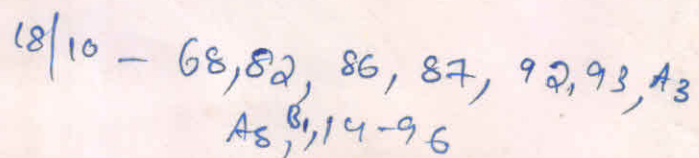 18/10 - 68,82, 86, 87, 92,93, A3
A8, B1, 14-96